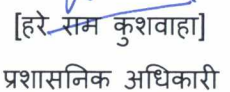 [हरे राम कुशवाहा]
प्रशासनिक अधिकारी